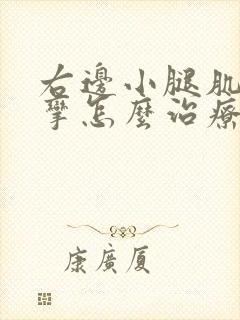 右邊小腿肌
攣怎麼治療
康廣厦